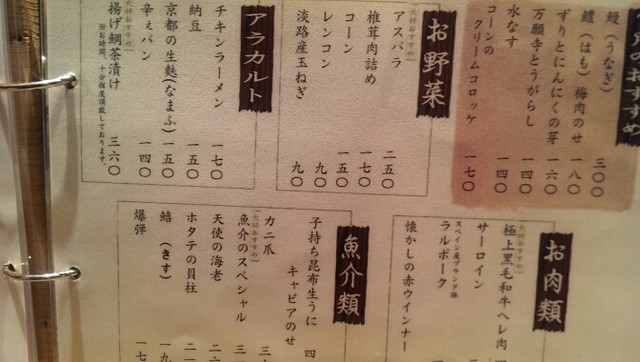 月のおすすめ
鰻（うなぎ） 三〇〇
鱧（はも）梅肉のせ 一八〇
ずりとにんにくの芽 一六〇
万願寺とうがらし 一四〇
水なす 一四〇
コーンの
クリームコロッケ 一七〇
お野菜
大将おすすめ
アスパラ 二五〇
椎茸肉詰め 一七〇
コーン 一五〇
レンコン 九〇
淡路産玉ねぎ 九〇
アラカルト
チキンラーメン 一七〇
納豆 一五〇
京都の生麩(なまふ) 一五〇
辛ぇパン 一四〇
大将おすすめ
揚げ鯛茶漬け 三六〇
※お時間、十分程度頂戴しております。
お肉類
大将おすすめ
極上黒毛和牛ヘレ肉
サーロイン
スペイン産ブランド豚
ラルポーク
懐かしの赤ウインナー
魚介類
子持ち昆布生うに
キャビアのせ 四
カニ爪
大将おすすめ
魚介のスペシャル
天使の海老
ホタテの貝柱
鱚（きす）
爆弾